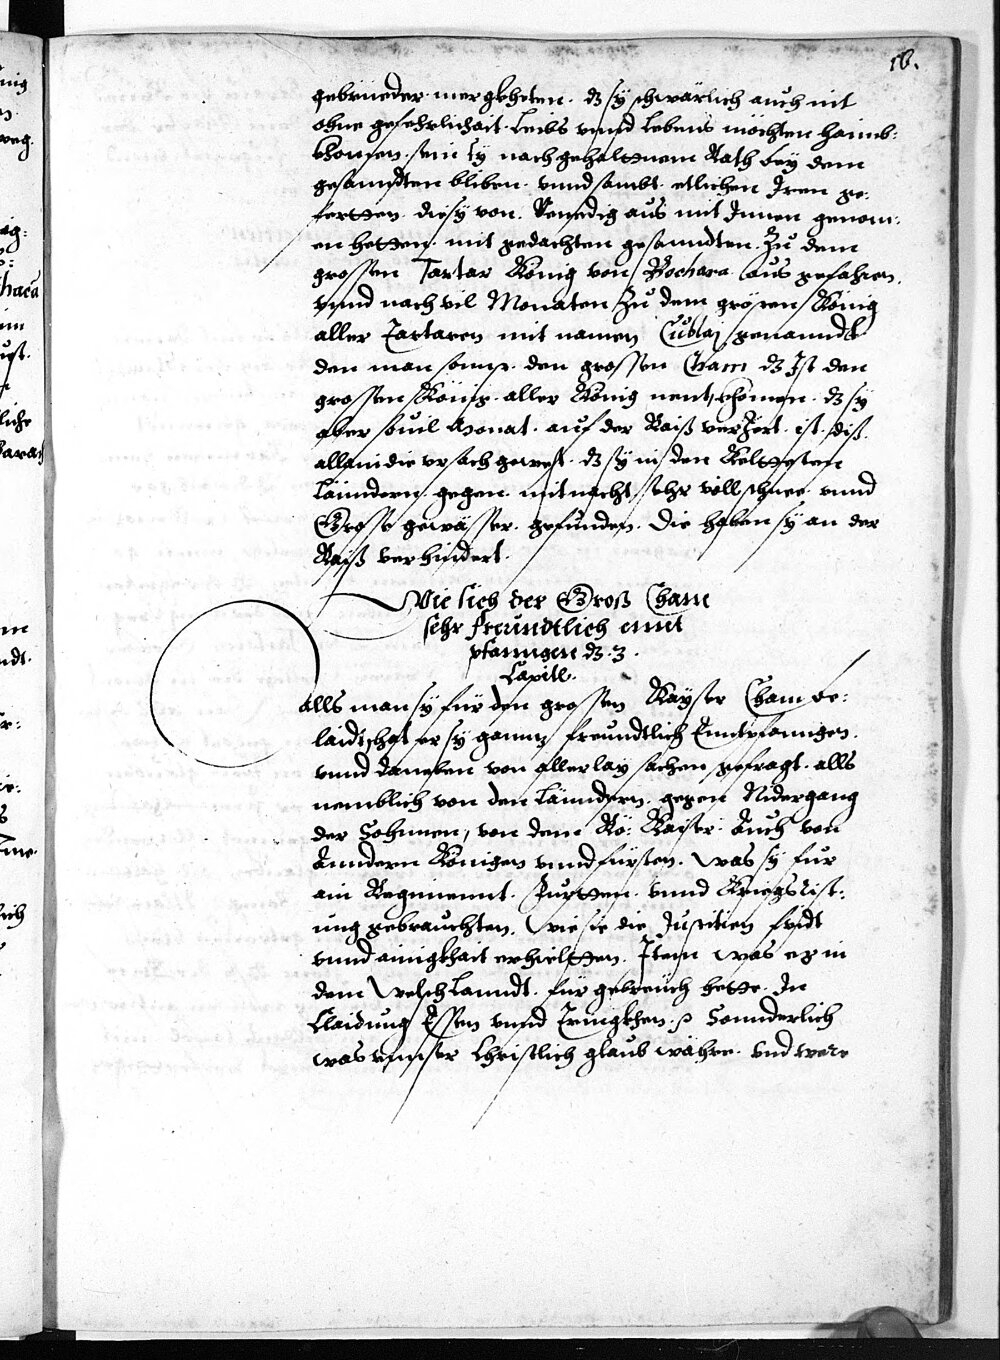 16.
gebrüeder mer gkheten. dz sÿ schwärlich auch nit
ohne gefehrlichait Leibs vnnd Lebens möchten haimb:
khomen. sein sÿ nach gehaltnem Rath beÿ dem
gesanndten bliben. vnnd sambt etlichen Iren ge:
fertten. die sÿ von Venedig aus mit Innen genom:
en hetten. mit gedachten gesanndten. Zu dem
grossen Tartar König von Bochara aus gefahren.
vnnd nach vil Monaten Zu dem grösten König
aller Tartaren mit namen Cublaj genanndt
den man sonst den grossen Cham dz Ist den
grossen König aller König nent, khomen. dz sÿ
aber souil Monat auf der Raiß verzert ist diß
allain die vrsach gewest. dz sÿ in den Keltesten
Länndern gegen mitnacht sehr vill schnee vnnd
Grosse gewässer gefunden. Die haben sÿ an der
Raiß verhindert.
Wie sich der Groß Cham
sehr freundtlich emnt
pfanngen dz .3.
Capitl.
Alls man sÿ für den grossen Kaÿser Cham be:
laidt, hat er sÿ gannz freundtlich Emntpfanngen.
vnnd daneben von allerlaÿ sachen gefragt. alls
nemblich von den Länndern gegen Nidergang
der Sohnnen, von dem Rö: Kaiser Auch von
Anndern Königen vnnd fürsten. was sÿ für
ain Regimennt. Purtten vnnd Kriegs Rist:
ung gebrauchten. Wie sie die Justitien fridt
vnnd ainigkhait erhieltten. Item was er in
dem Welschlanndt für gebreüch hette. In
Claidung Essen vnnd Trinngkhen. Sonnderlich
was vnnser Christlich glaub währe. vnd were